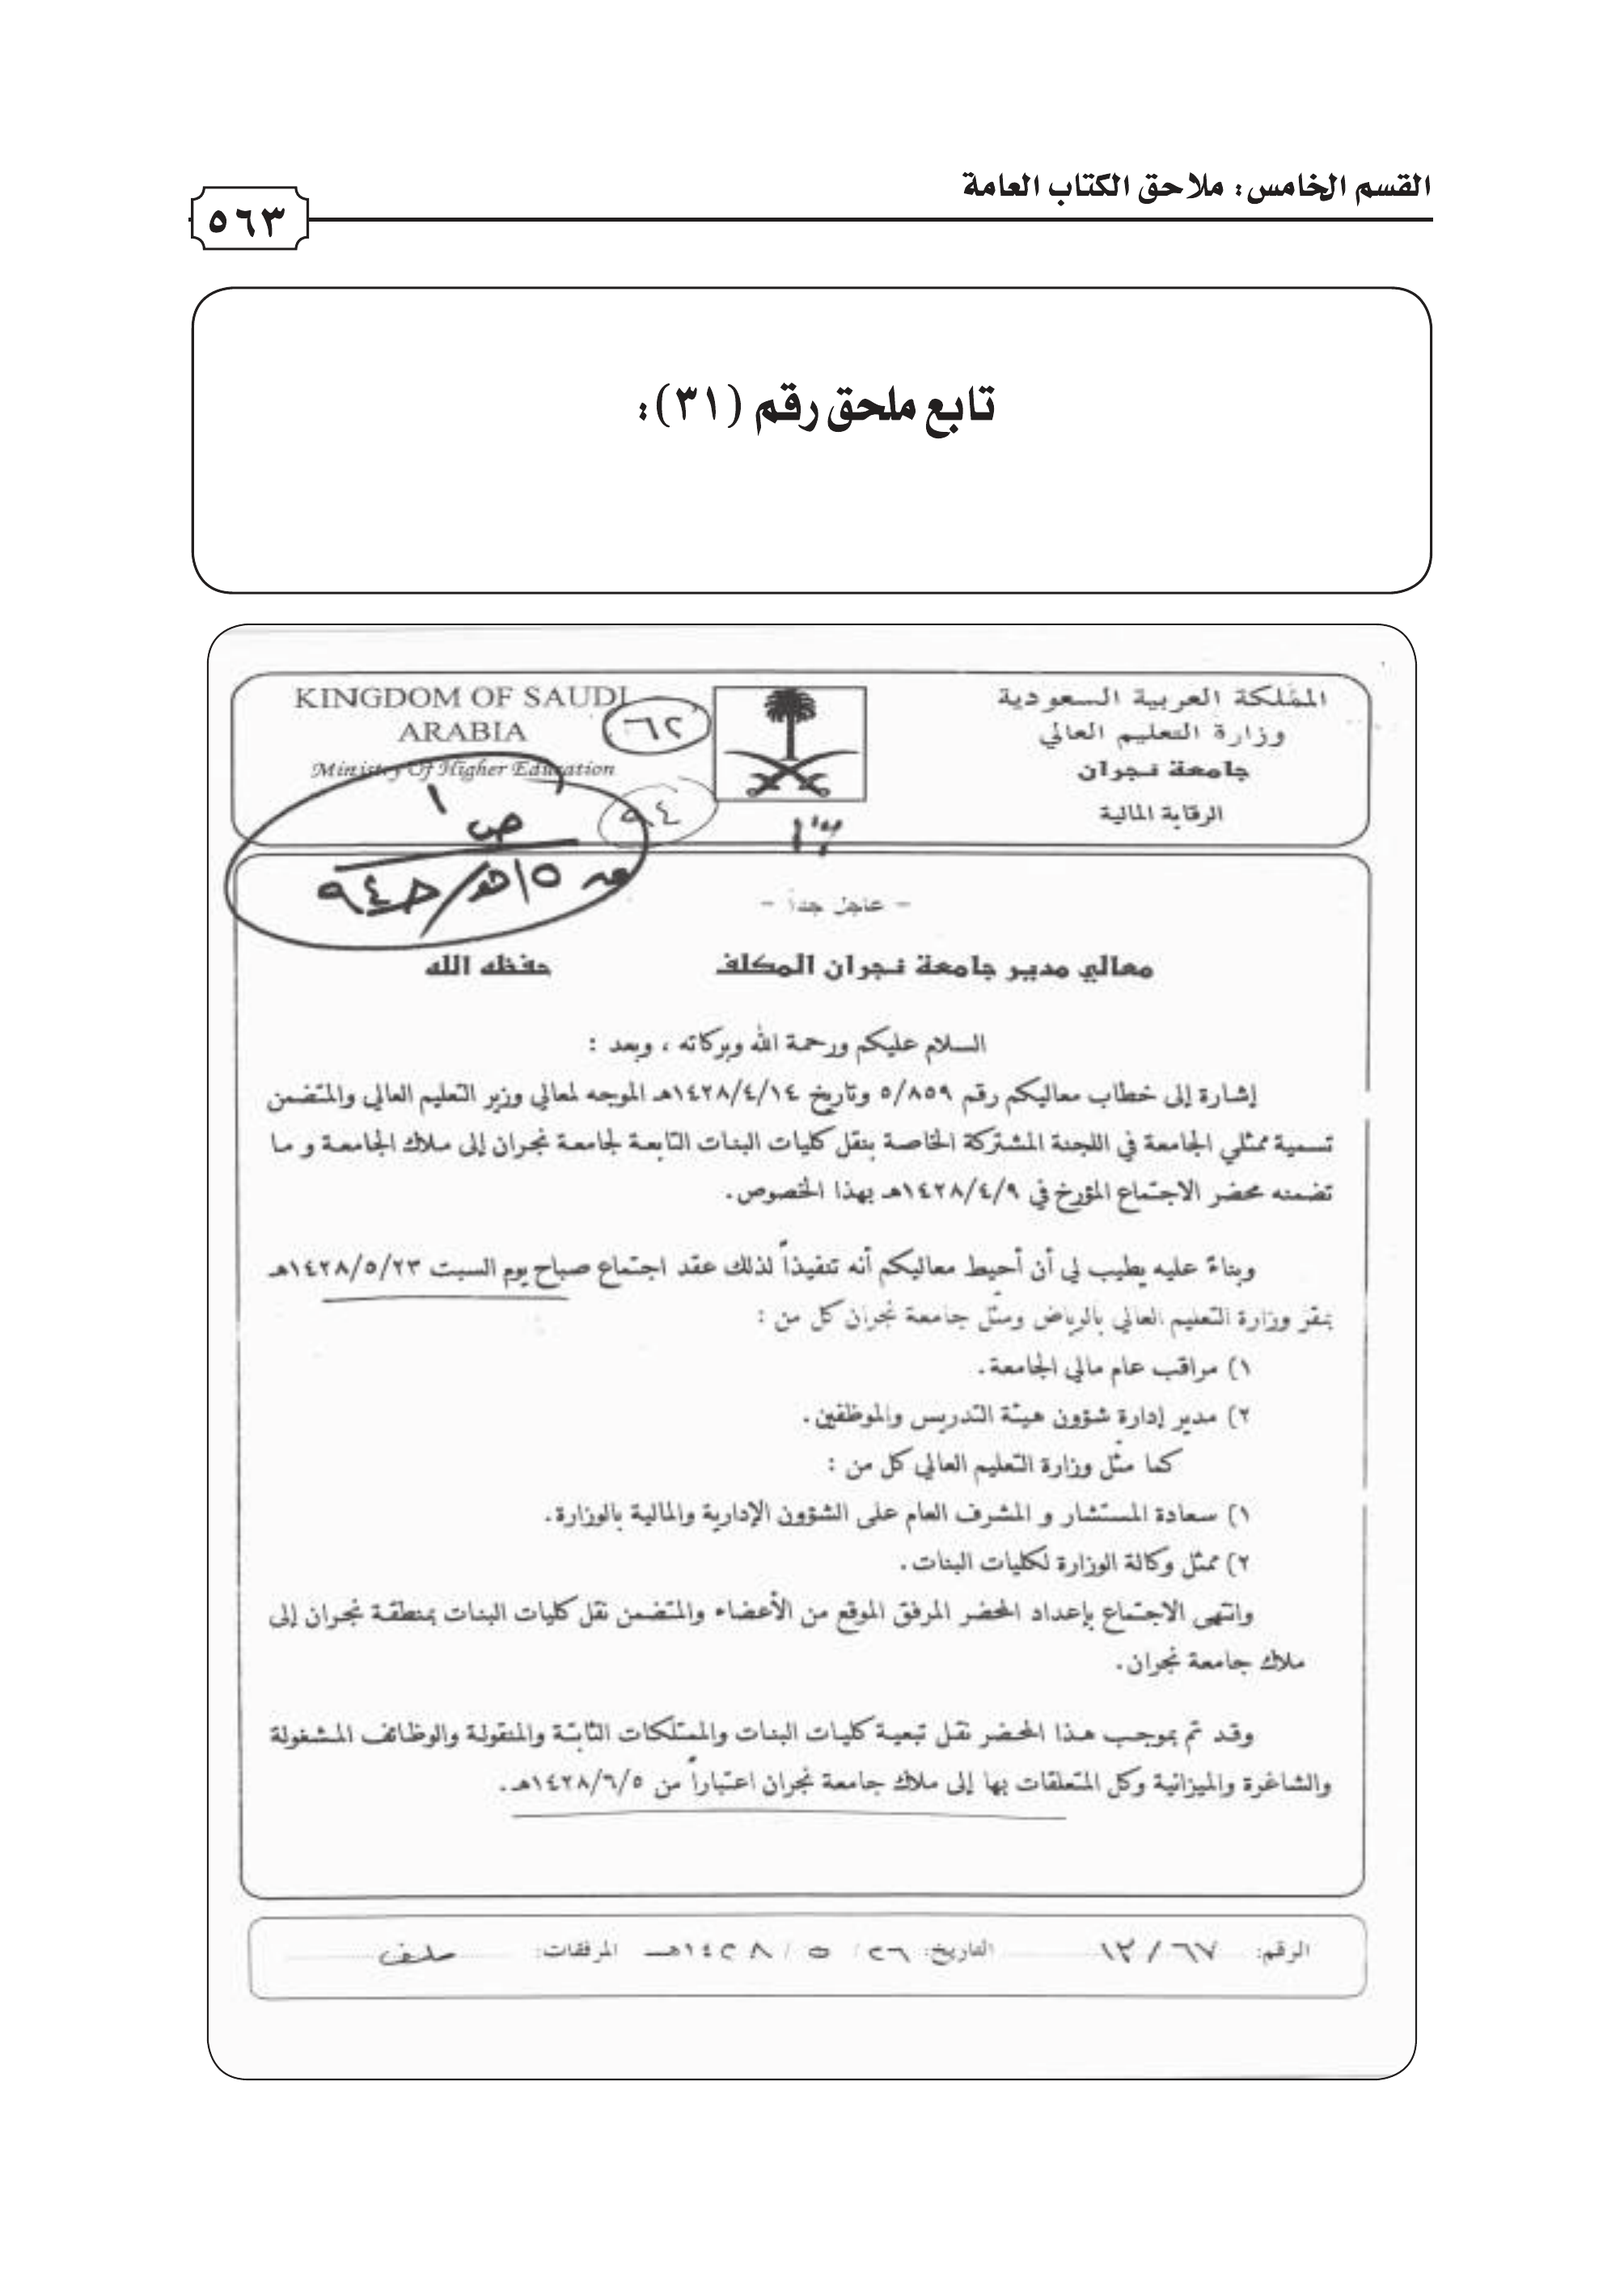 القسم الخامس: ملاحق الكتاب العامة
٥٦٣
تابع ملحق رقم (٣١):
المملكة العربية السعودية
وزارة التعليم العالي
جامعة نجران
الرقابة المالية
KINGDOM OF SAUDI
ARABIA
Ministry Of Higher Education
٦٢
٩٤
ص ١
- عاجل جداً -
معالي مدير جامعة نجران المكلف حفظه الله
السلام عليكم ورحمة الله وبركاته ، وبعد :
إشارة إلى خطاب معاليكم رقم ٥/٨٥٩ وتاريخ ١٤٢٨/٤/١٤هـ الموجه لمعالي وزير التعليم العالي والمتضمن
تسمية ممثلي الجامعة في اللجنة المشتركة الخاصة بنقل كليات البنات التابعة لجامعة نجران إلى ملاك الجامعة و ما
تضمنه محضر الاجتماع المؤرخ في ١٤٢٨/٤/٩هـ بهذا الخصوص.
وبناءً عليه يطيب لي أن أحيط معاليكم أنه تنفيذاً لذلك عقد اجتماع صباح يوم السبت ١٤٢٨/٥/٢٣هـ
بمقر وزارة التعليم العالي بالرياض ومثّل جامعة نجران كل من :
١) مراقب عام مالي الجامعة.
٢) مدير إدارة شؤون هيئة التدريس والموظفين.
كما مثّل وزارة التعليم العالي كل من :
١) سعادة المستشار و المشرف العام على الشؤون الإدارية والمالية بالوزارة.
٢) ممثل وكالة الوزارة لكليات البنات.
وانتهى الاجتماع بإعداد المحضر المرفق الموقع من الأعضاء والمتضمن نقل كليات البنات بمنطقة نجران إلى
ملاك جامعة نجران.
وقد تم بموجب هذا المحضر نقل تبعية كليات البنات والممتلكات الثابتة والمنقولة والوظائف المشغولة
والشاغرة والميزانية وكل المتعلقات بها إلى ملاك جامعة نجران اعتباراً من ١٤٢٨/٦/٥هـ.
الرقم: ١٢/٦٧ التاريخ: ٢٦/ ٥ / ١٤٢٨هـ المرفقات: ملف